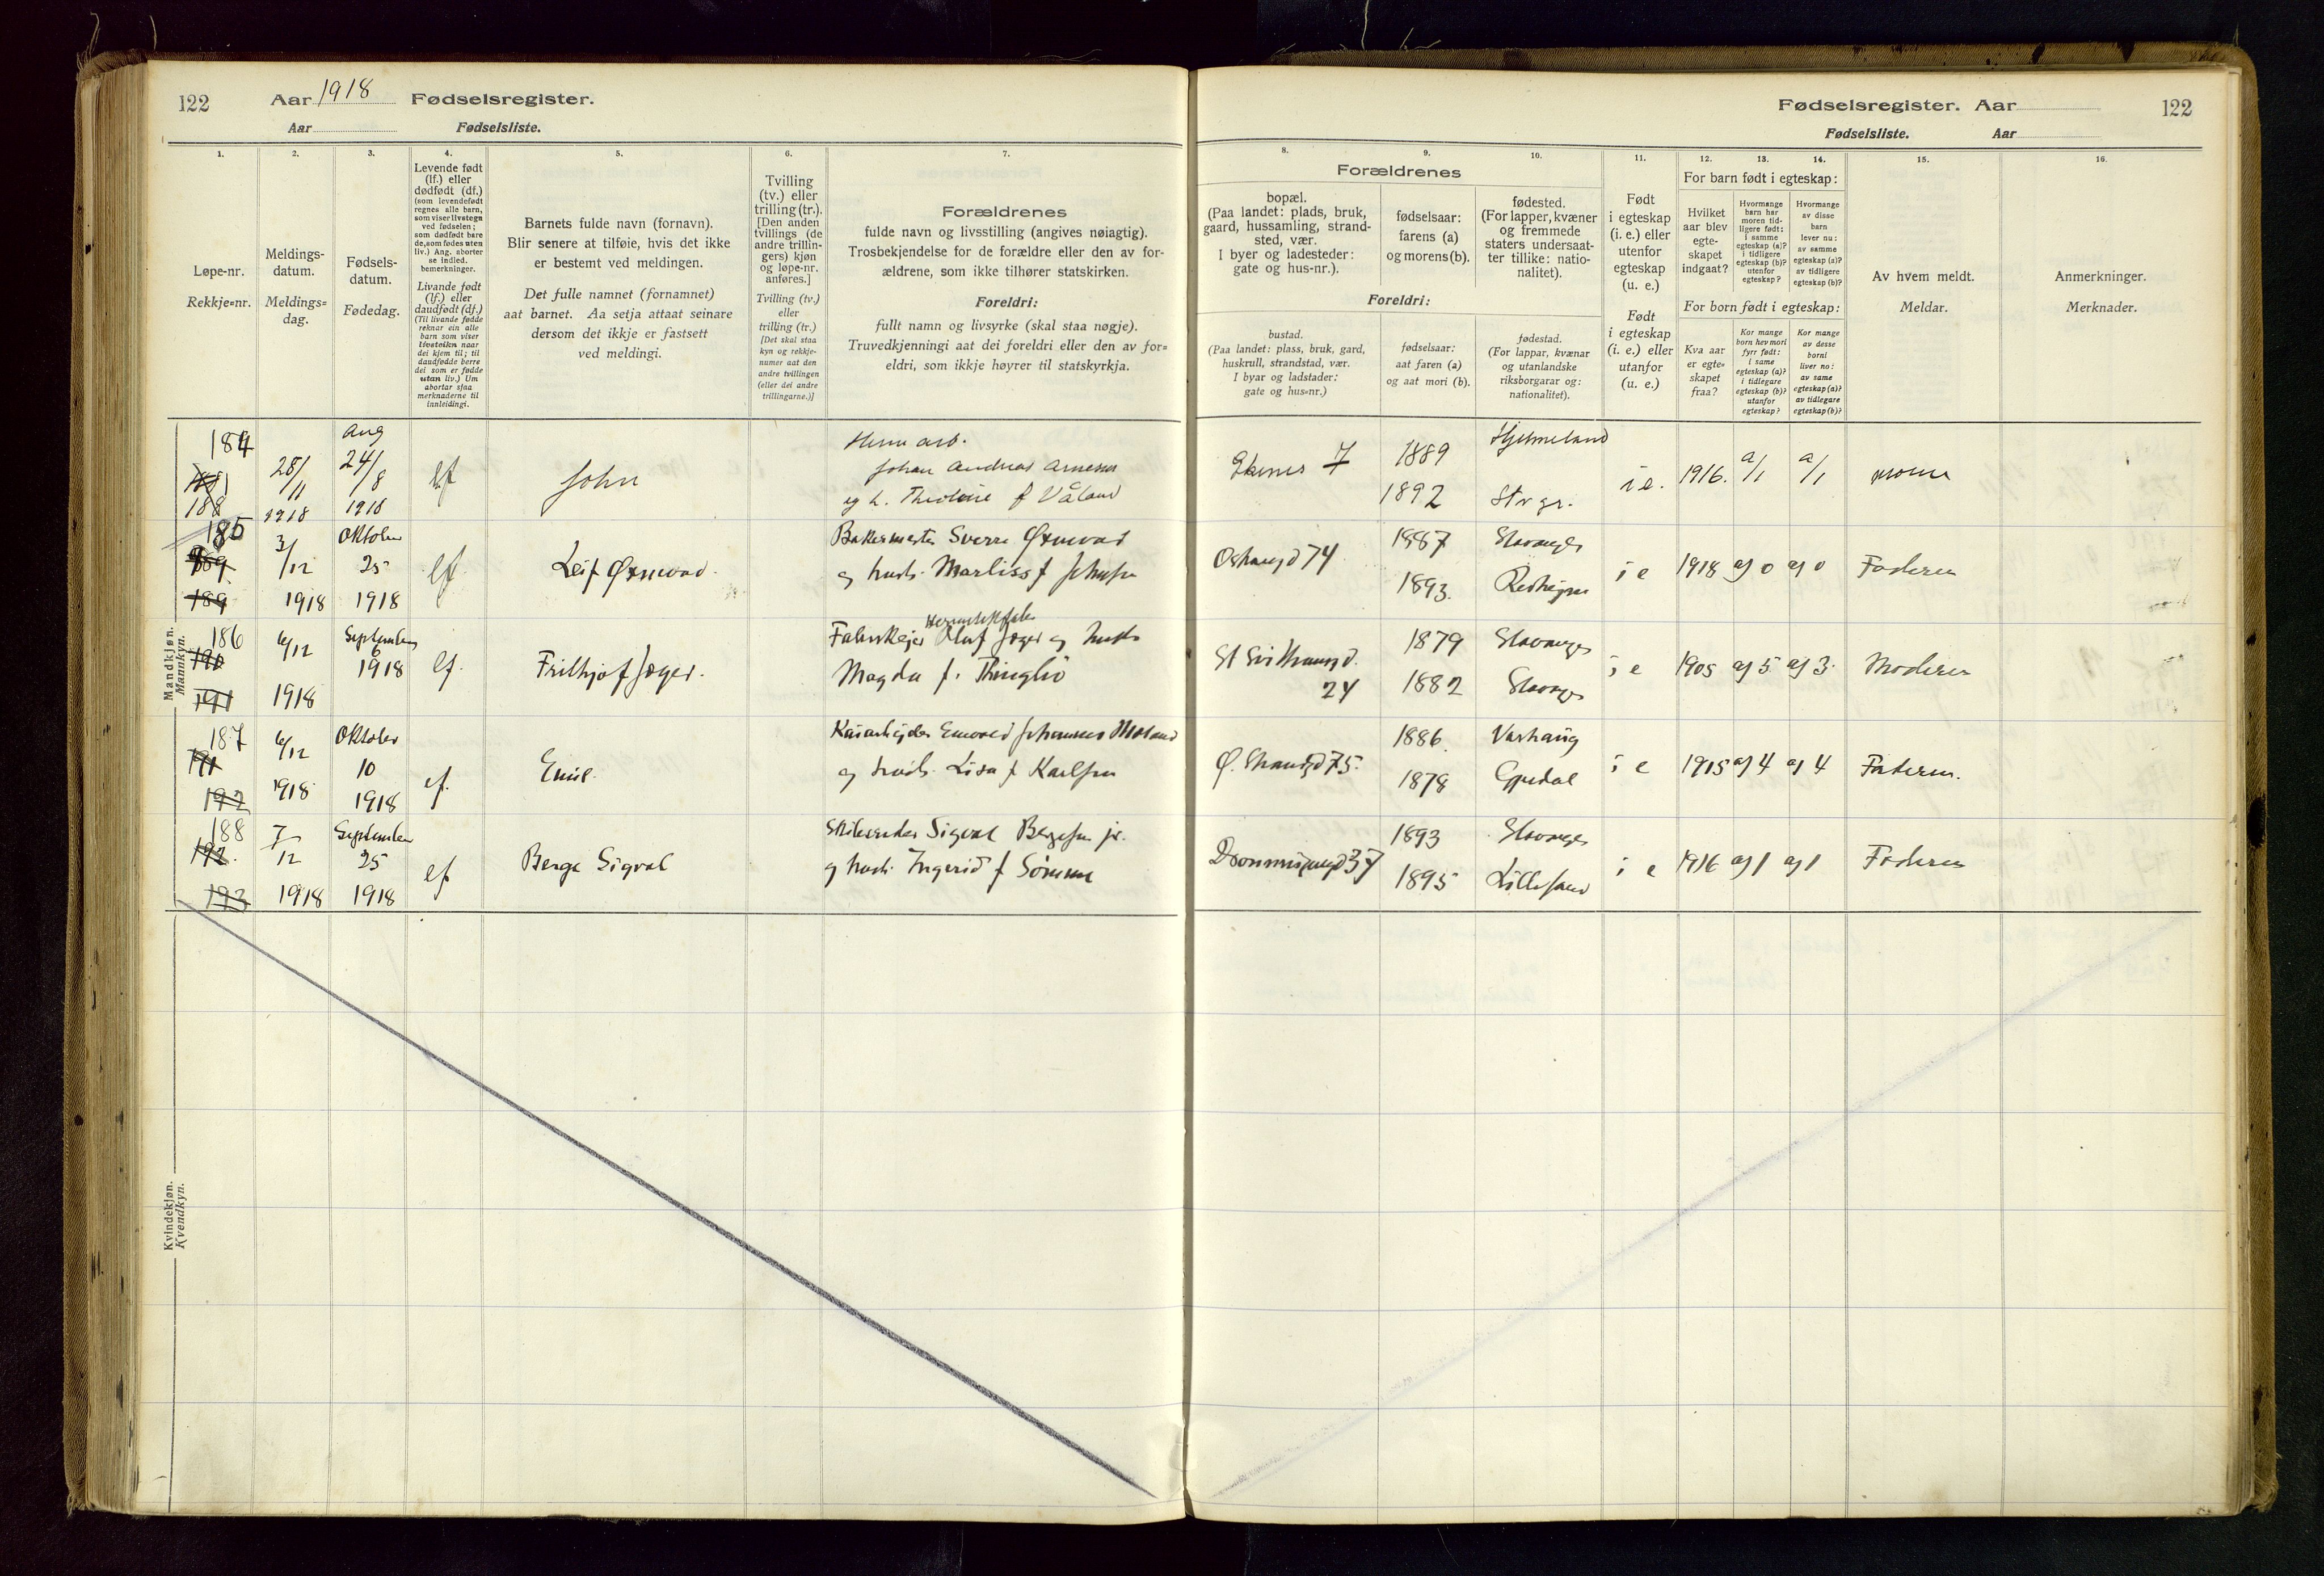 122
Aar 1918 Fødselsregister.
Aar Fødselsliste.
Fødselsregister. Aar
122
Fødselsliste. Aar
1.
Løpe-nr.
Rekkje=nr.
2.
Meldings-
datum.
Meldings=
dag.
3.
Fødsels-
datum.
Fødedag.
4.
Levende født
(lf.) eller
dødfødt (df.)
(som levendefødt
regnes alle barn,
som viser livstegn
ved fødselen;
som dødfødt bare
de, som fødes uten
liv.) Ang. aborter
se indled.
bemerkninger.
Livande født
(lf.) eller
daudfødt (df.)
(Til livande fødde
reknar ein alle
barn som viser
livsteikn naar
dei kjem til; til
daudfødde berre
dei som er fødde
utan liv.) Um
abortar sjaa
merknaderne til
innleidingi.
5.
Barnets fulde navn (fornavn).
Blir senere at tilføie, hvis det ikke
er bestemt ved meldingen.
Det fulle namnet (fornamnet)
aat barnet. Aa setja attaat seinare
dersom det ikkje er fastsett
ved meldingi.
6.
Tvilling
(tv.) eller
trilling (tr.).
[Den anden
tvillings (de
andre trillin-
gers) kjøn
og løpe-nr.
anføres.]
Tvilling (tv.)
eller
trilling (tr.)
[Det skal staa
kyn og rekkje-
numer aat den
andre tvillingen
(eller dei andre
trillingarne.)]
7.
Forældrenes
fulde navn og livsstilling (angives nøiagtig).
Trosbekjendelse for de forældre eller den av for-
ældrene, som ikke tilhører statskirken.
Foreldri:
fullt namn og livsyrke (skal staa nøgje).
Truvedkjenningi aat dei foreldri eller den av for=
eldri, som ikkje høyrer til statskyrkja.
Forældrenes
8.
bopæl.
(Paa landet: plads, bruk,
gaard, hussamling, strand-
sted, vær.
I byer og ladesteder:
gate og hus-nr.).
Foreldri:
bustad.
(Paa landet: plass, bruk, gard,
huskrull, strandstad, vær.
I byar og ladstader:
gate og hus=nr.)
9.
fødselsaar:
farens (a)
og morens (b).
fødselsaar:
aat faren (a)
og aat mori (b).
10.
fødested.
(For lapper, kvæner
og fremmede
staters undersaat-
ter tillike: natio-
nalitet).
fødestad.
(For lappar, kvænar
og utanlandske
riksborgarar og:
nationalitet).
11.
Født
i egteskap
(i. e.) eller
utenfor
egteskap
(u. e.)
Født
i egteskap
(i. e.) eller
utanfor
(u. e.)
12. 13. 14.
For barn født i egteskap:
Hvilket
aar blev
egte-
skapet
indgaat?
Hvormange
barn har
moren tid-
ligere født:
i samme
egteskap (a)?
i tidligere
egteskap (b)?
utenfor
egteskap?
Hvormange
av disse
barn
lever nu:
av samme
egteskap (a)?
av tidligere
egteskap (b)?
For born født i egteskap:
Kva aar
er egte=
skapet
fraa?
Kor mange
born hev mori
fyrr født:
i same
egteskap (a)?
i tidlegare
egteskap (b)?
utanfor
egteskap?
Kor mange
av desse
borni
liver no:
av same
egteskap (a)?
av tidlegare
egteskap (b)?
15.
Av hvem meldt.
Meldar.
16.
Anmerkninger.
Merknader.
Mandkjøn.
Mannkyn.
184
188
28/11
1918
Aug
24/8
1918
lf
John
Herm arb.
Johan Andreas Arnesen
og h. f Våland
7
1889
1892
Hjelmeland
Stvgr.
i e. 1916. a/1 a/1
185
189
189
3/12
1918
Oktober
25
1918
lf
Leif Øxnevad
Bakermester Sverre Øxnevad
og hustr. Marliss f Johnsen
74
1887
1893
Stavanger
i e 1918 a) 0 a) 0 Faderen
186
190
191
6/12
1918
September
6
1918
lf.
Frithjof Jæger.
Oluf Jæger og hustr
Magda f.
24
1879
1882
Stavanger
Stavanger
i e 1905 a) 5 a) 3. Moderen
187
191
192
6/12
1918
Oktober
10
1918
lf.
Emil
Kaiarbejder Johannes
og hustr. Lisa f Karlsen
Ø. Strandgd 75.
1886
1878
Varhaug
i e 1915 a) 4 a) 4 Faderen.
188
192.
193
7/12
1918
September
25
1918
lf
Berge Sigval
Skibsreder Sigval Bergesen jr.
og hustr. Ingerid f Sömme
37
1893
1895
Stavanger
Lillesand
i e 1916 a) 1 a) 1 Faderen
Kvindekjøn.
Kvendkyn.